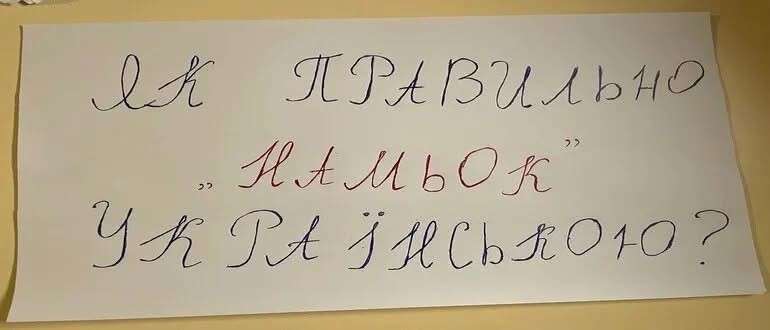 ЯК ПРАВИЛЬНО
„НАМЬОК”
УКРАЇНСЬКОЮ?